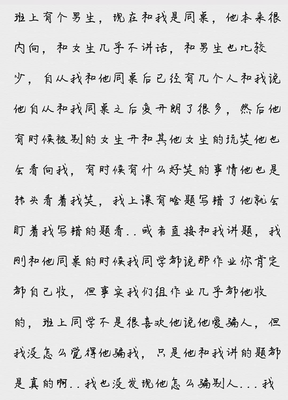 班上有个男生，现在和我是同桌，他本来很
内向，和女生几乎不讲话，和男生也比较
少，自从我和他同桌后已经有几个人和我说
他自从和我同桌之后变开朗了很多，然后他
有时候被别的女生开和其他女生的玩笑他也
会看向我，有时候有什么好笑的事情他也是
转头看着我笑，我上课有啥题写错了他就会
盯着我写错的题看..或者直接和我讲题，我
刚和他同桌的时候我同学都说那作业你肯定
都自己收，但事实我们组作业几乎都他收
的，班上同学不是很喜欢他说他爱骗人，但
我没怎么觉得他骗我，只是他和我讲的题都
是真的啊..我也没发现他怎么骗别人...我